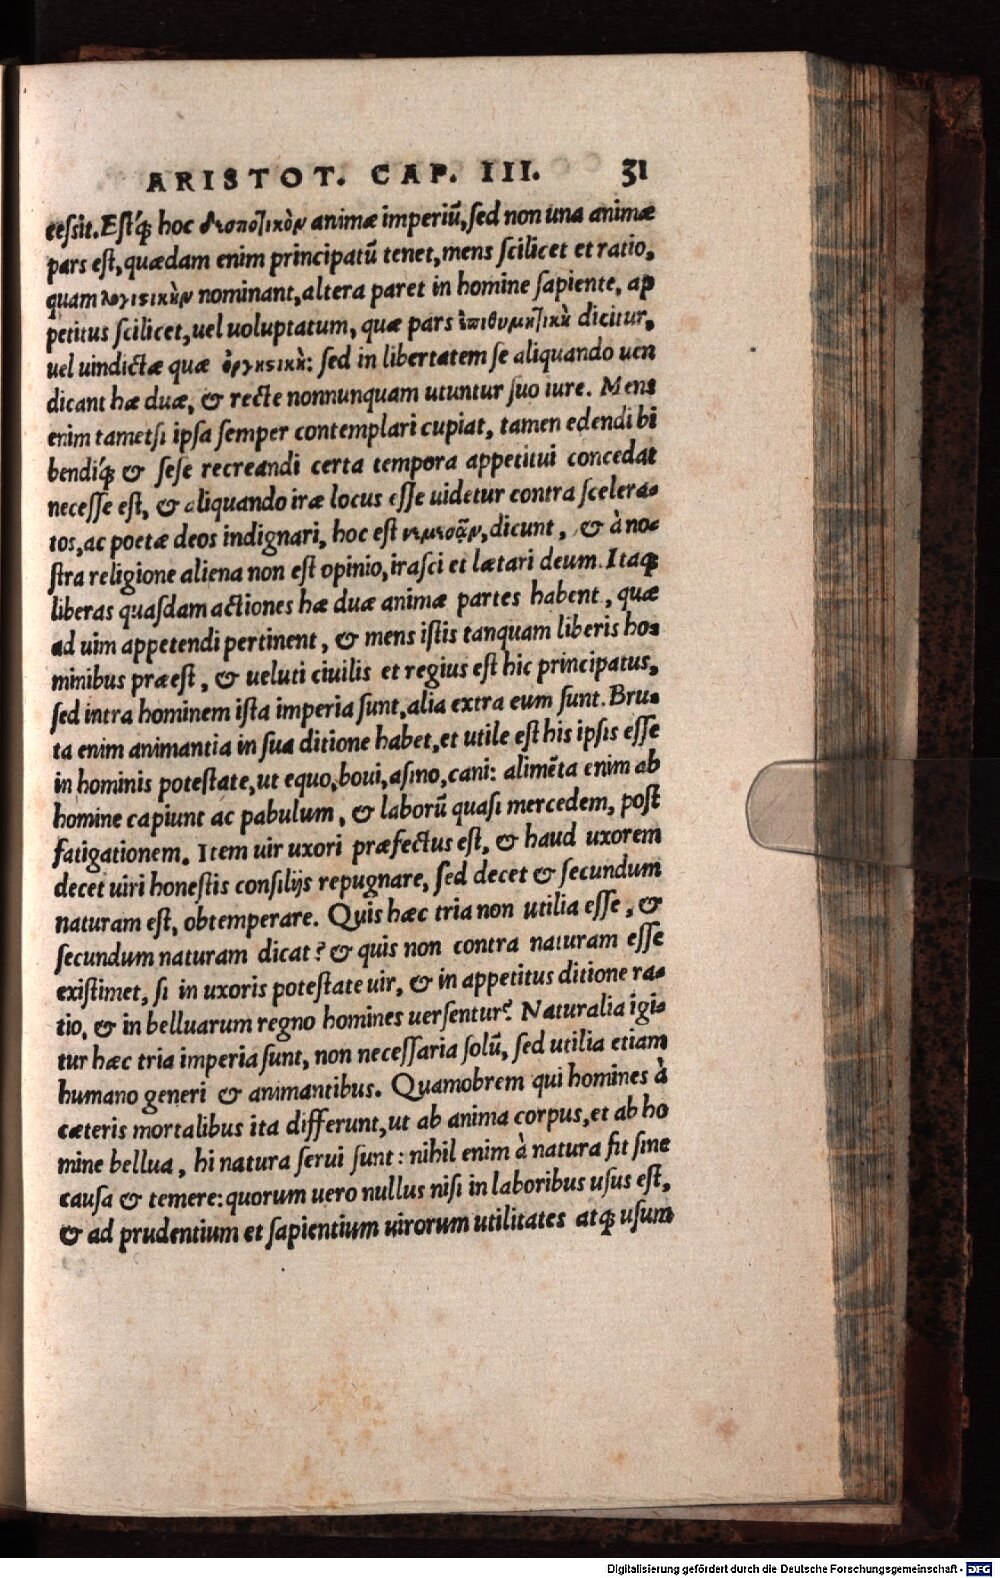 ARISTOT. CAP. III. 31
cessit. Estq́; hoc δεσποτικὸν animæ imperiũ, sed non una animæ
pars est, quædam enim principatũ tenet, mens scilicet et ratio,
quam λογιστικὴν nominant, altera paret in homine sapiente, ap
petitus scilicet, uel uoluptatum, quæ pars ἐπιθυμητικὴ dicitur,
uel uindictæ quæ ὀργητικὴ: sed in libertatem se aliquando uen
dicant hæ duæ, & recte nonnunquam utuntur suo iure. Mens
enim tametsi ipsa semper contemplari cupiat, tamen edendi bi
bendiq́; & sese recreandi certa tempora appetitui concedat
necesse est, & aliquando iræ locus esse uidetur contra scelera-
tos, ac poetæ deos indignari, hoc est νεμεσᾷν, dicunt, & à no-
stra religione aliena non est opinio, irasci et lætari deum. Itaq;
liberas quasdam actiones hæ duæ animæ partes habent, quæ
ad uim appetendi pertinent, & mens istis tanquam liberis ho-
minibus præest, & ueluti ciuilis et regius est hic principatus,
sed intra hominem ista imperia sunt, alia extra eum sunt. Bru-
ta enim animantia in sua ditione habet, et utile est his ipsis esse
in hominis potestate, ut equo, boui, asino, cani: alimẽta enim ab
homine capiunt ac pabulum, & laborũ quasi mercedem, post
fatigationem. Item uir uxori præfectus est, & haud uxorem
decet uiri honestis consilijs repugnare, sed decet & secundum
naturam est, obtemperare. Quis hæc tria non utilia esse, &
secundum naturam dicat? & quis non contra naturam esse
existimet, si in uxoris potestate uir, & in appetitus ditione ra-
tio, & in belluarum regno homines uersentur? Naturalia igi-
tur hæc tria imperia sunt, non necessaria solũ, sed utilia etiam
humano generi & animantibus. Quamobrem qui homines à
cæteris mortalibus ita differunt, ut ab anima corpus, et ab ho
mine bellua, hi natura serui sunt: nihil enim à natura fit sine
causa & temere: quorum uero nullus nisi in laboribus usus est,
& ad prudentium et sapientium uirorum utilitates atq; usum
Digitalisierung gefördert durch die Deutsche Forschungsgemeinschaft - DFG